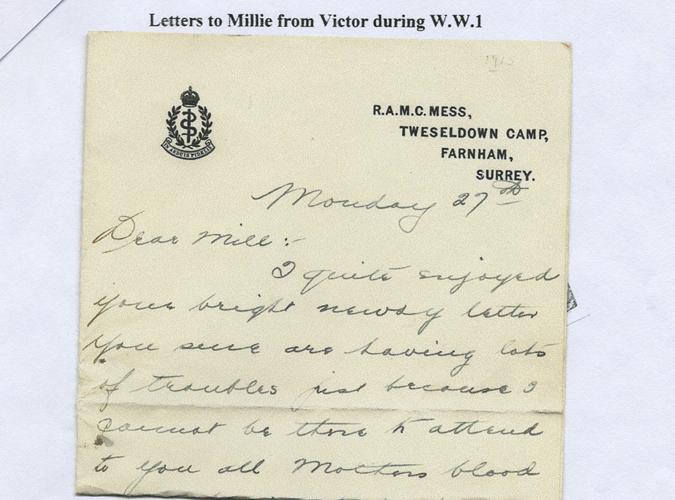 Letters to Millie from Victor during W.W.1
R.A.M.C. MESS,
TWESELDOWN CAMP,
FARNHAM,
SURREY.
IN ARDUIS FIDELIS
Monday 27th
Dear Mill:-
I quite enjoyed
your bright newsy letter
You sure are having lots
of troubles just because I
cannot be there to attend
to you all Mothers blood